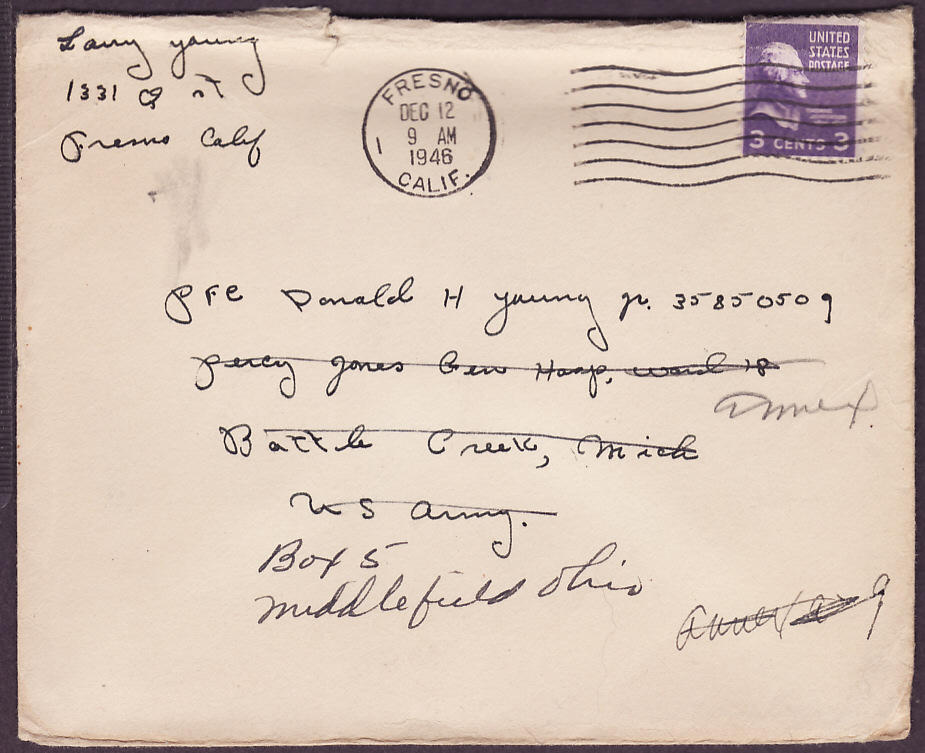 Larry Young
1331 Q st
Fresno Calif
FRESNO
DEC 12
9 AM
1946
1
CALIF.
UNITED
STATES
POSTAGE
3 CENTS 3
PFC Donald H Young Jr. 35850509
Percy Jones Gen Hosp, ward 18
Annex
Battle Creek, Mich
US Army.
Box 5
Middlefield Ohio
Annex 9